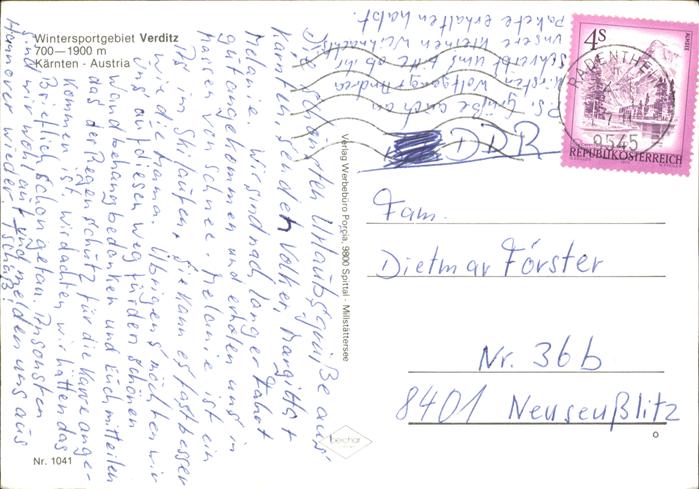 Wintersportgebiet Verditz
700—1900 m
Kärnten - Austria
Die schönsten Urlaubsgrüße aus
Kärnten senden Volker, Margitta +
Melanie. Wir sind nach langer Fahrt
gut angekommen und erholen uns in
Massen von Schnee. Melanie ist ein
As im Skilaufen, sie kann es fast besser
wie die Mama. Übrigens möchten wir
uns auf diesen Weg für den schönen
Wandbehang bedanken und Euch mitteilen
das der Regenschutz für die Karre ange-
kommen ist. Wir dachten wir hätten das
Brieflich schon getan. Ansonsten
sind wir wohlauf und melden uns aus
Hannover wieder. Tschüß!
P.S. Grüße auch an
Kirsten Wolfgang + Andrea
Schreibt uns bitte ob ihr
unsere kleinen Weihnachts-
pakete erhalten habt.
Verlag Werbebüro Porcia, 9800 Spittal - Millstättersee
Nr. 1041
4S
ALMSEE
REPUBLIK ÖSTERREICH
RADENTHEIN
9545
DDR
Fam.
Dietmar Förster
Nr. 36b
8401 Neuseußlitz